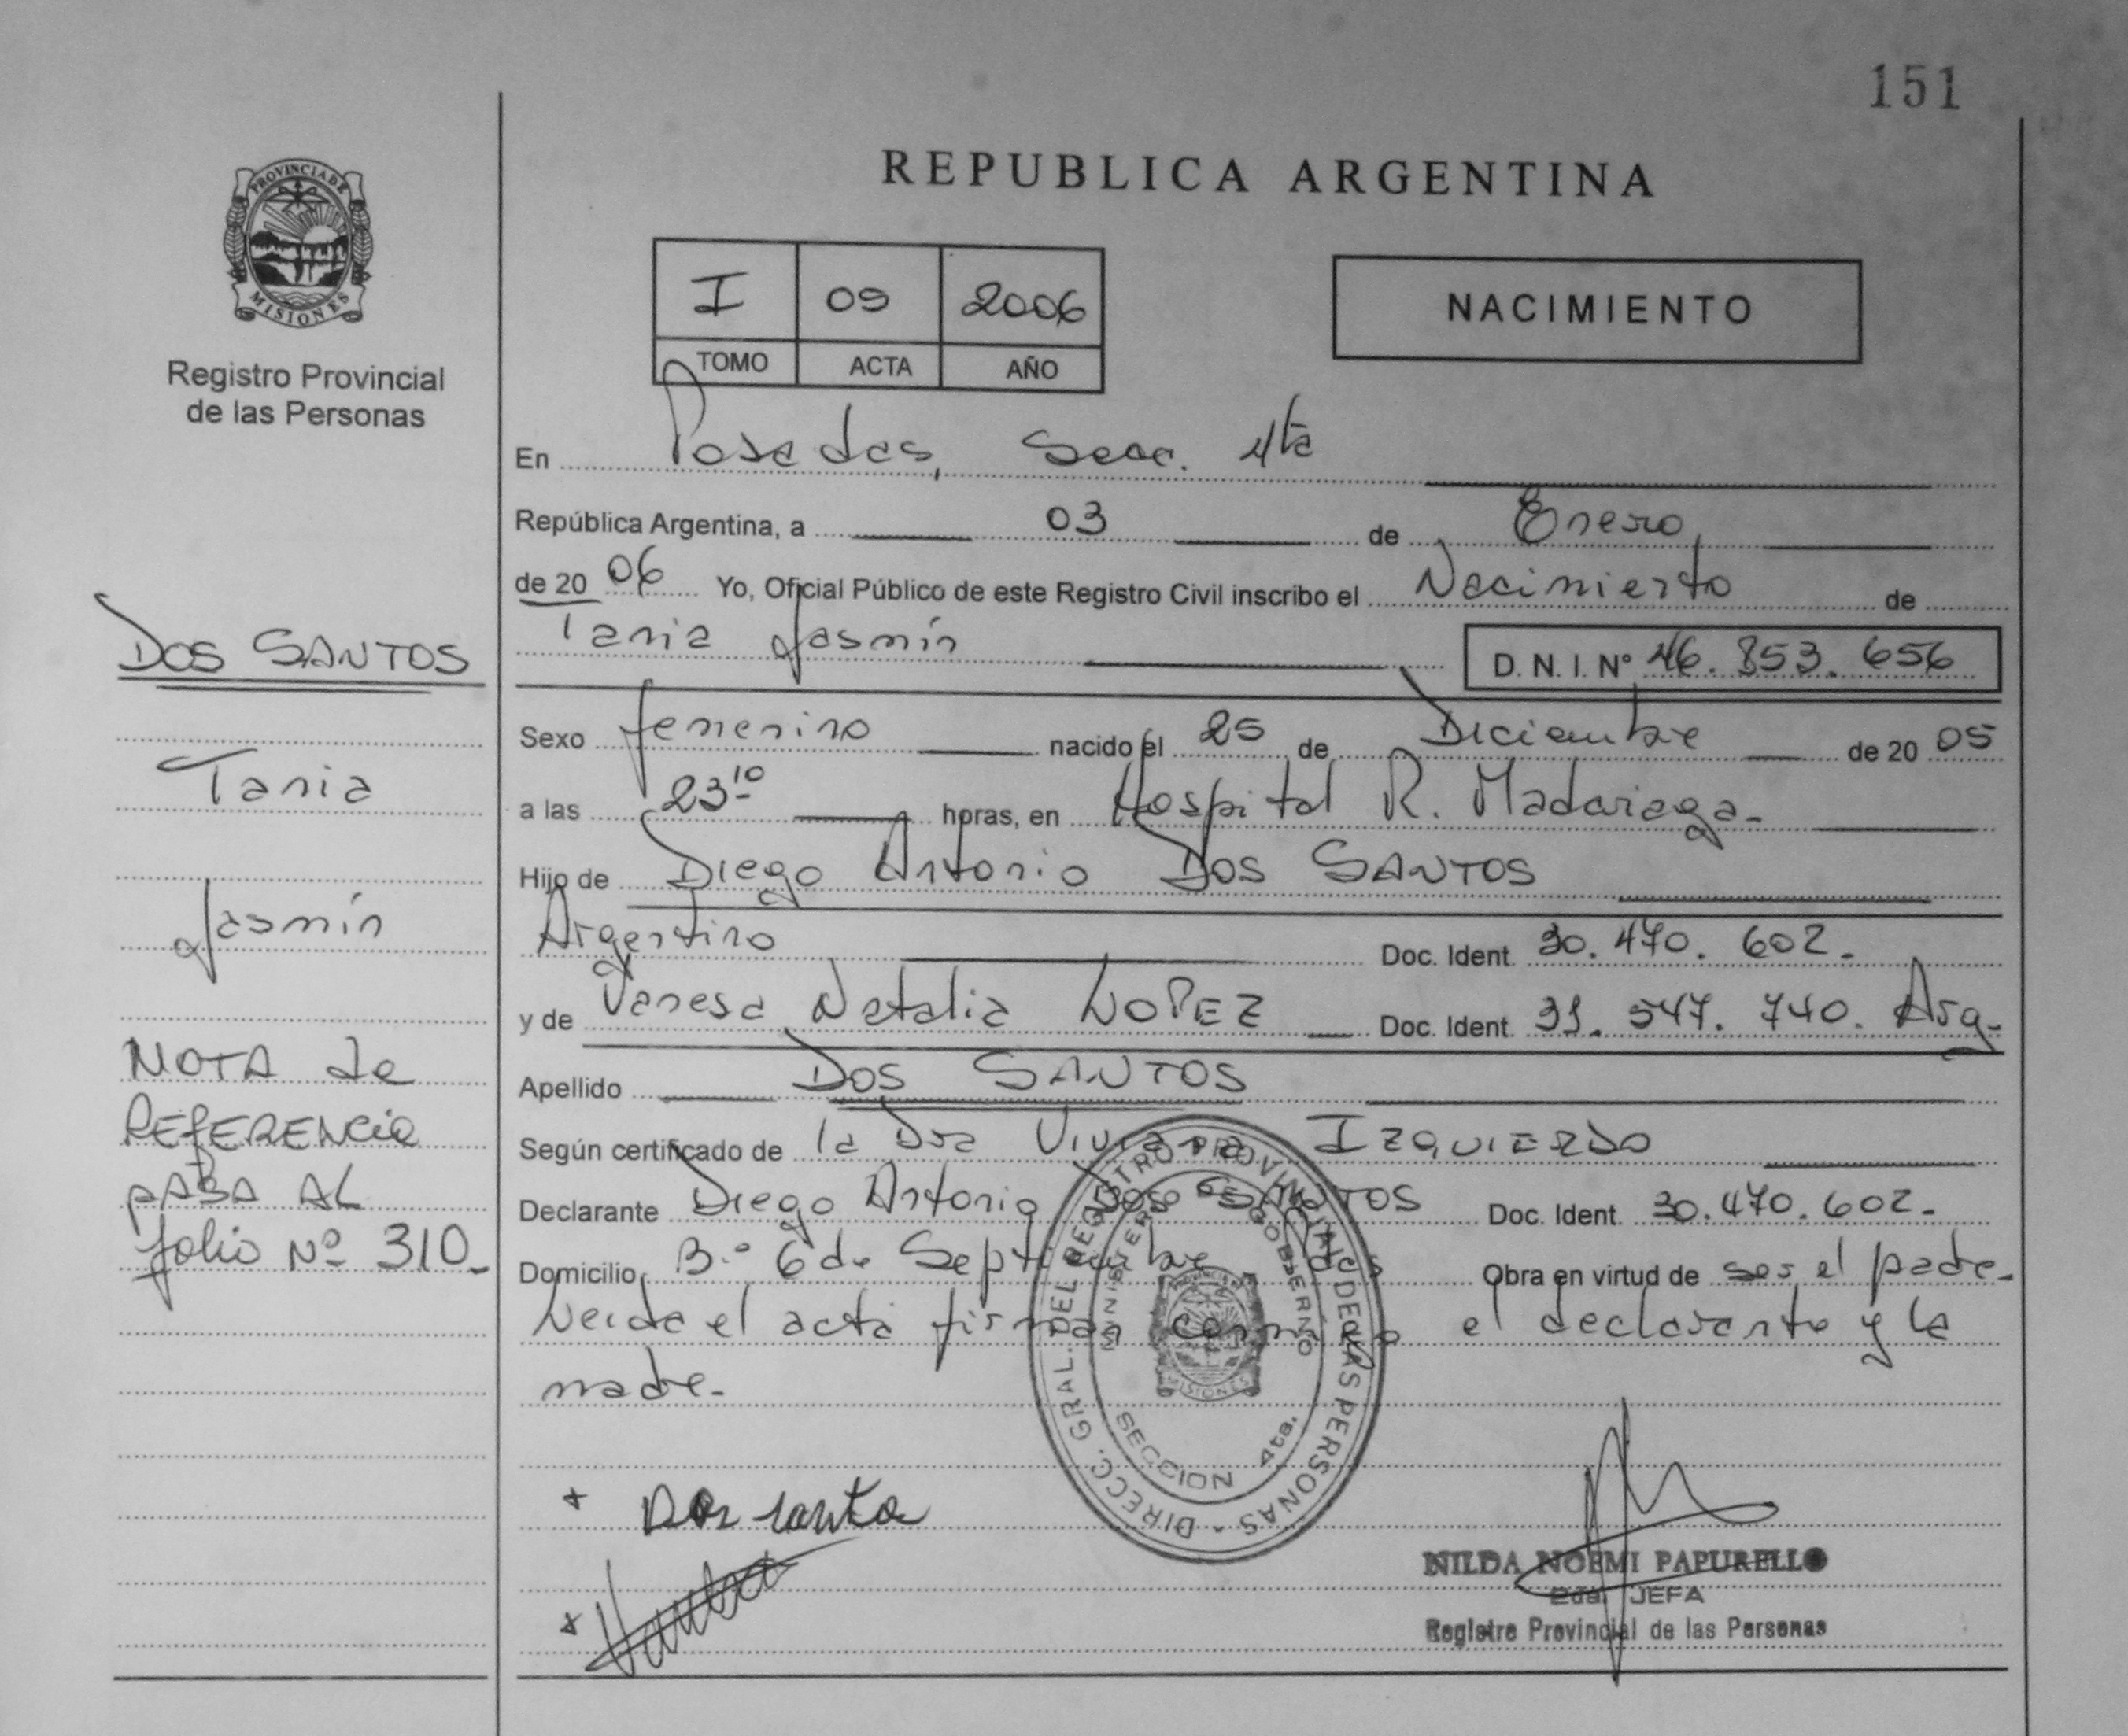 151
REPUBLICA ARGENTINA
PROVINCIA DE
MISIONES
Registro Provincial
de las Personas
I 09 2006
TOMO ACTA AÑO
NACIMIENTO
En Posadas, Secc. 4ta
República Argentina, a 03 de Enero,
de 20 06 Yo, Oficial Público de este Registro Civil inscribo el Nacimiento de
Tania Jasmín D.N.I. Nº 46.353.656
Sexo femenino nacido el 25 de Diciembre de 20 05
a las 23 10 horas, en Hospital R. Madariaga.
Hijo de Diego Antonio DOS SANTOS
Argentino Doc. Ident. 30.470.602.
y de Vanesa Natalia LOPEZ Doc. Ident. 31.547.740. Arg.
Apellido DOS SANTOS
Según certificado de la Dra Viviana IZQUIERDO
Declarante Diego Antonio DOS SANTOS Doc. Ident. 30.470.602.
Domicilio B.º 6 de Septiembre Pdas Obra en virtud de ser el padre.
Leida el acta firman conmigo el declarante y la
madre.
DOS SANTOS
Tania
Jasmín
NOTA de
REFERENCIA
PASA AL
folio Nº 310.
DIRECC. GRAL. DEL REGISTRO PROVINCIAL DE LAS PERSONAS
MINISTERIO DE GOBIERNO
PROVINCIA DE
MISIONES
SECCION 4ta.
Dos santo
NILDA NOEMI PAPURELLO
2da. JEFA
Registro Provincial de las Personas